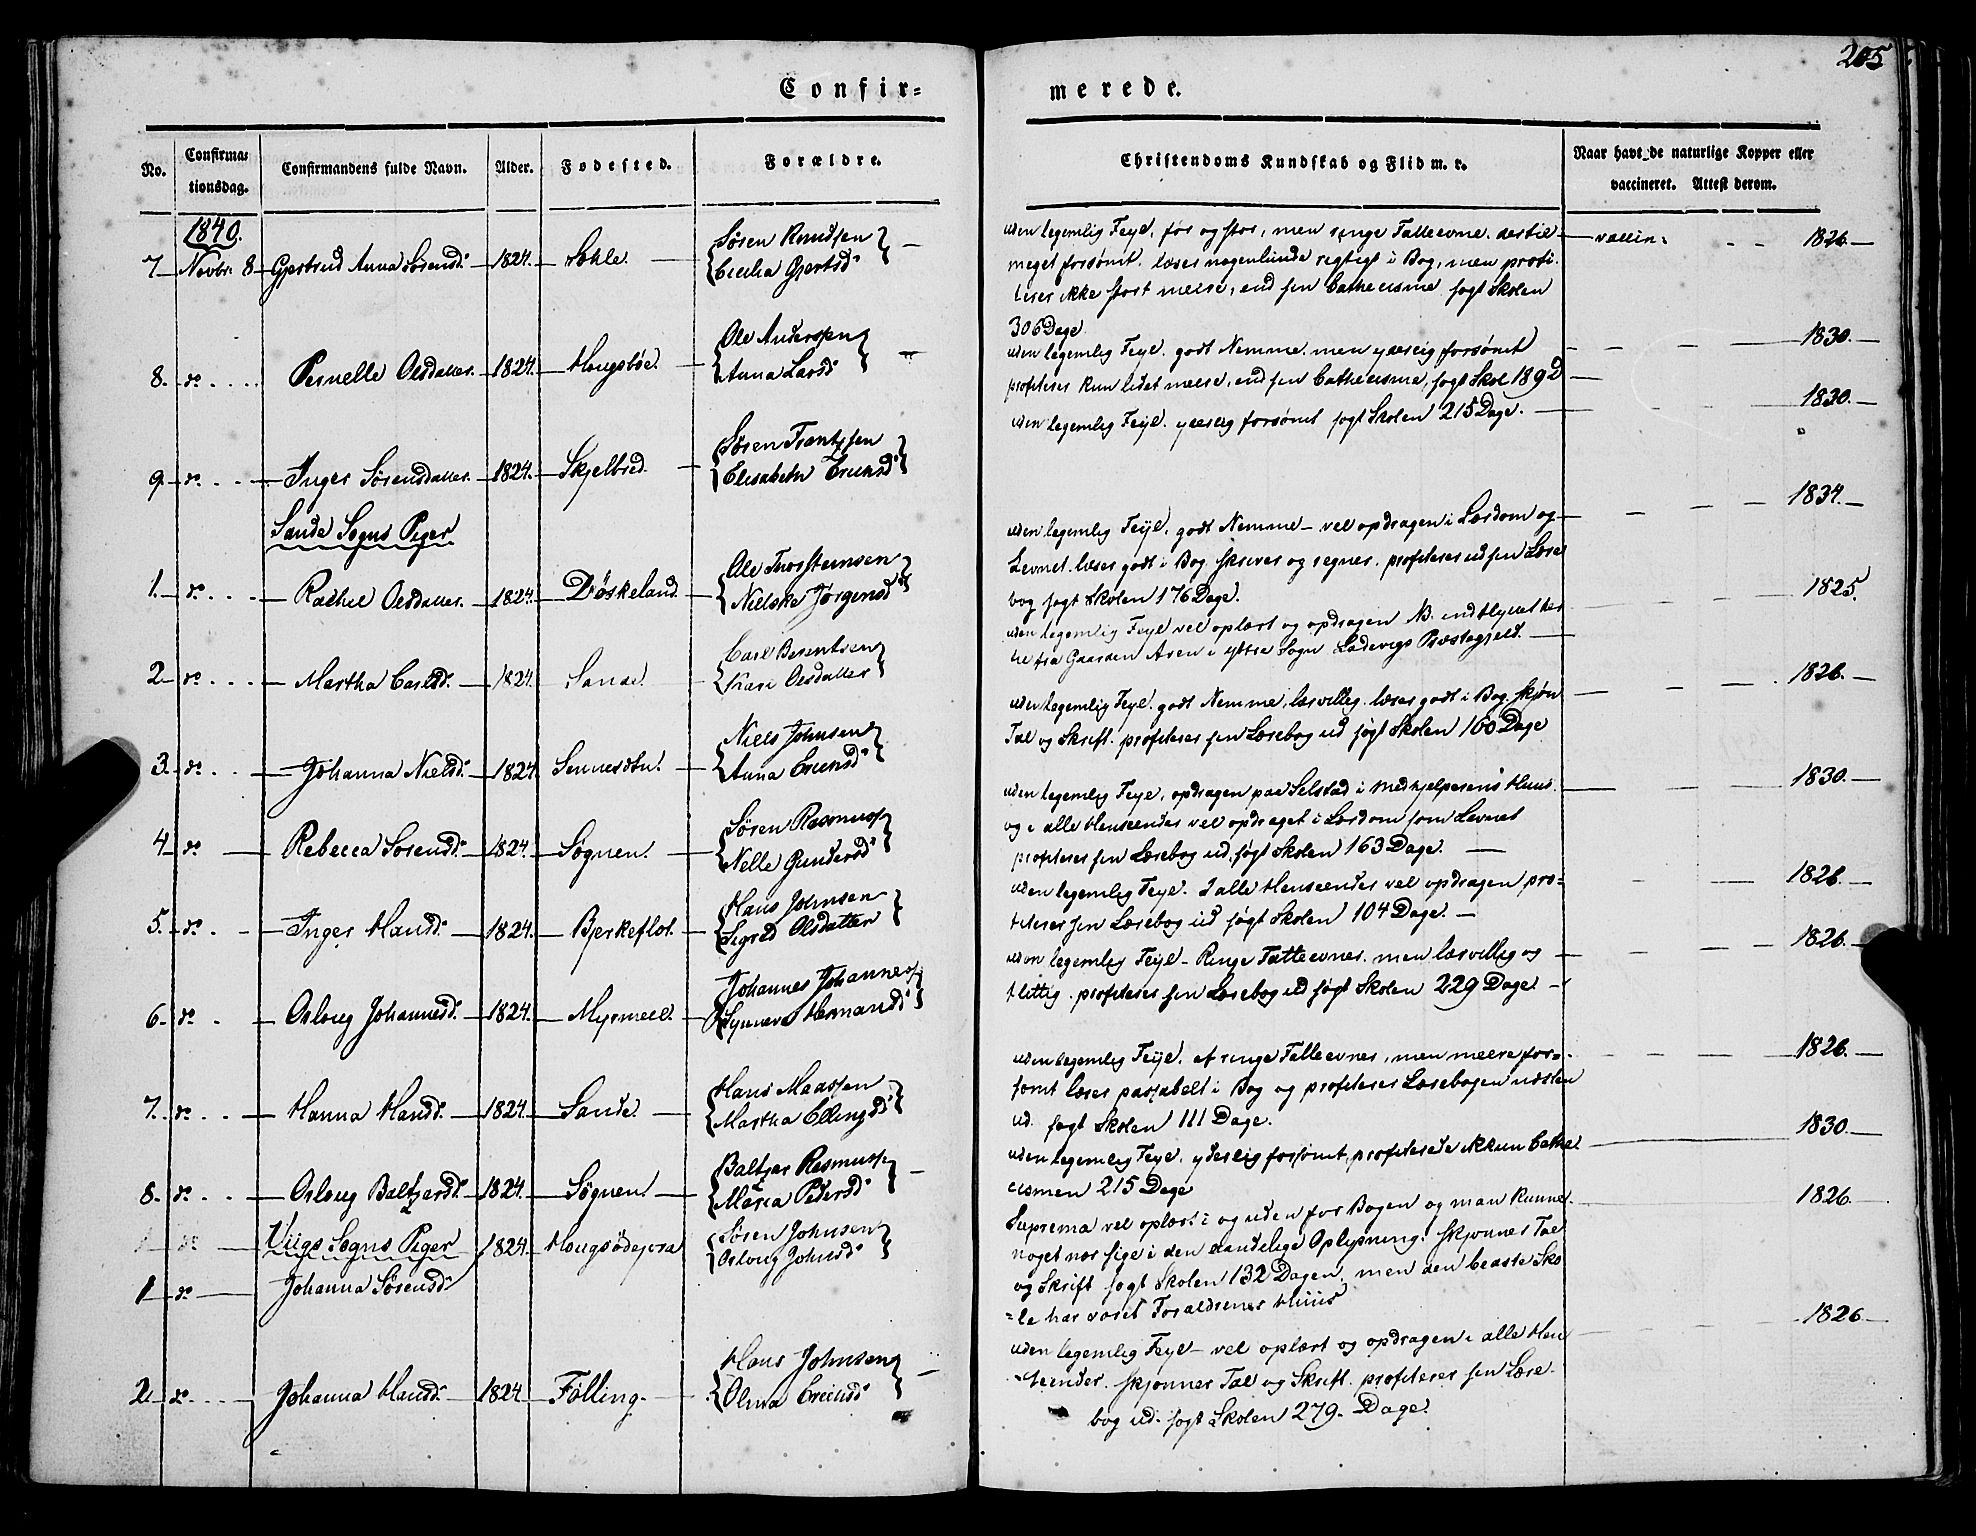 205
Confir=
merede.
No.
Confirma=
tionsdag.
Confirmandens fulde Navn.
Alder.
Fødested.
Forældre.
Christendoms Kundskab og Flid m. v.
Naar havt de naturlige Kopper eller
vaccineret. Attest derom.
1840.
7 Novbr. 8 Gjertrud Anna Sørensd. 1824. Søren Knudsen
Cecilia Gjertsd
uden legemlig Feyl, før og stor, men ringe Fatteevne. dertil
meget forsømt. læser nogenlunde rigtigt i Bog, men profi-
terer ikke stort meere, end sin Cathecisme søgt Skolen
306 Dage
vaccin: 1826.
8. do Pernelle Olsdatter. 1824. Hougsbøe. Ole Andersen
Anna Larsd
uden legemlig Feyl. godt Nemme. men yderlig forsømt
profiterer kun lidet meere, end sin Cathecisme, søgt Skol 189 D
1830.
9 do Inger Sørensdatter. 1824. Skjelbred. Søren Frantzsen
Elisabeth Ericksd
uden legemlig Feyl. yderlig forsømt søgt Skolen 215 Dage.
1830.
Sande Sogns Piger
1. do Rachel Olsdatter. 1824. Døskeland Ole Thorsteinsen
Nielske Jørgensd
uden legemlig Feyl, godt Nemme - vel opdragen i Lærdom og
Levnet. læser godt i Bog. skriver og regner. profiterer ud sin Læse
bog søgt Skolen 176 Dage.
1834.
2 do Martha Carlsd. 1824. Sande. Carl Berentsen
Kari Olsdatter
uden legemlig Feyl vel oplært og opdragen NB. indflyttet her
til fra Gaarden Aren i Yttre Sogn Ladevigs Præstegjeld.
1825.
3. do Johanna Nielsd. 1824. Niels Johnsen
Anna Ericksd
uden legemlig Feyl. godt Nemme, lærvillig. læser godt i Bog. skjøn
Tal og Skrift. profiterer sin Læsebog ud søgt Skolen 160 Dage
1826.
4 do Rebecca Sørensd. 1824. Søgnen. Søren Rasmuss
Nelle Gundersd
uden legemlig Feyl, opdragen paa Selstad i Medhjelperens Huus.
og i alle Henseender vel opdraget i Lærdom som Levnet
profiterer sin Læsebog ud. søgt Skolen 163 Dage.
1830.
5. do Inger Hansd. 1824. Bjerkeflot. Hans Johnsen
Sigrid Olsdatter
uden legemlig Feyl. I alle Henseender vel opdragen pro=
fiterer sin Læsebog ud søgt Skolen 104 Dage.
1826.
6. do Oslaug Johannesd. 1824. Myrmeel. Johannes Johannes
Synneva Hermansd
uden legemlig Feyl - Ringe Fatteevner. men lærvillig og
flittig. profiterer sin Læsebog ud søgt Skolen 229 Dage
1826.
7. do Hanna Hansd. 1824. Sande. Hans Maassen
Martha Ellingsd
uden legemlig Feyl. af ringe Fatteevner, men meere for=
sømt læser passabelt i Bog og profiterer Læsebogen næsten
ud. søgt Skolen 111 Dage.
1826.
8. do Oslaug Baltzersd. 1824. Søgnen Baltzer Rasmuss
Maria Pedersd
uden legemlig Feyl, yderlig forsømt, profiterede ikkun Cathe
cismen 215 Dage
1830.
Viigs Sogns Piger
1 do Johanna Sørensd 1824. Hougsødejora Søren Johnsen
Oslaug Johnsd
Suprema vel oplært i og uden for Bogen og man kunne
noget nær sige i den aandelige Oplysning. skjønner Tal
og Skrift søgt Skolen 132 Dagen, men den beste Sko
=le har været Forældrenes Huus
1826.
2. do Johanna Hansd. 1824 Følling. Hans Johnsen
Olina Ericksd
uden legemlig Feyl - vel oplært og opdragen i alle Hen
=seender. skjønner Tal og Skrift. profiterer sin Læse-
bog ud. søgt Skolen 279. Dage.
1826